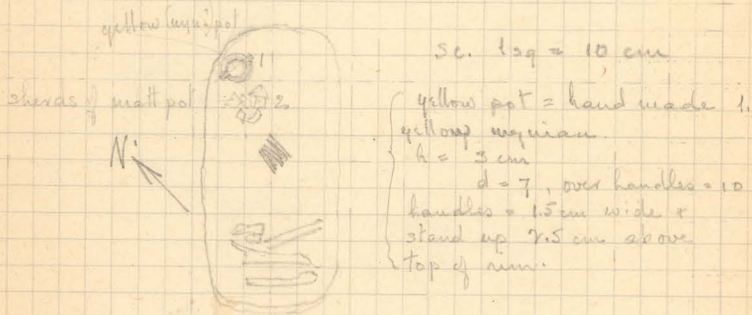 yellow (myn) pot
1
sc. 1sq = 10 cm
sherds of matt pot
2
yellow pot = hand made 1.
yellow mynian.
N
h = 3 cm
d = 7, over handles = 10
handles = 1.5 cm wide &
stand up 2.5 cm above
top of rim.